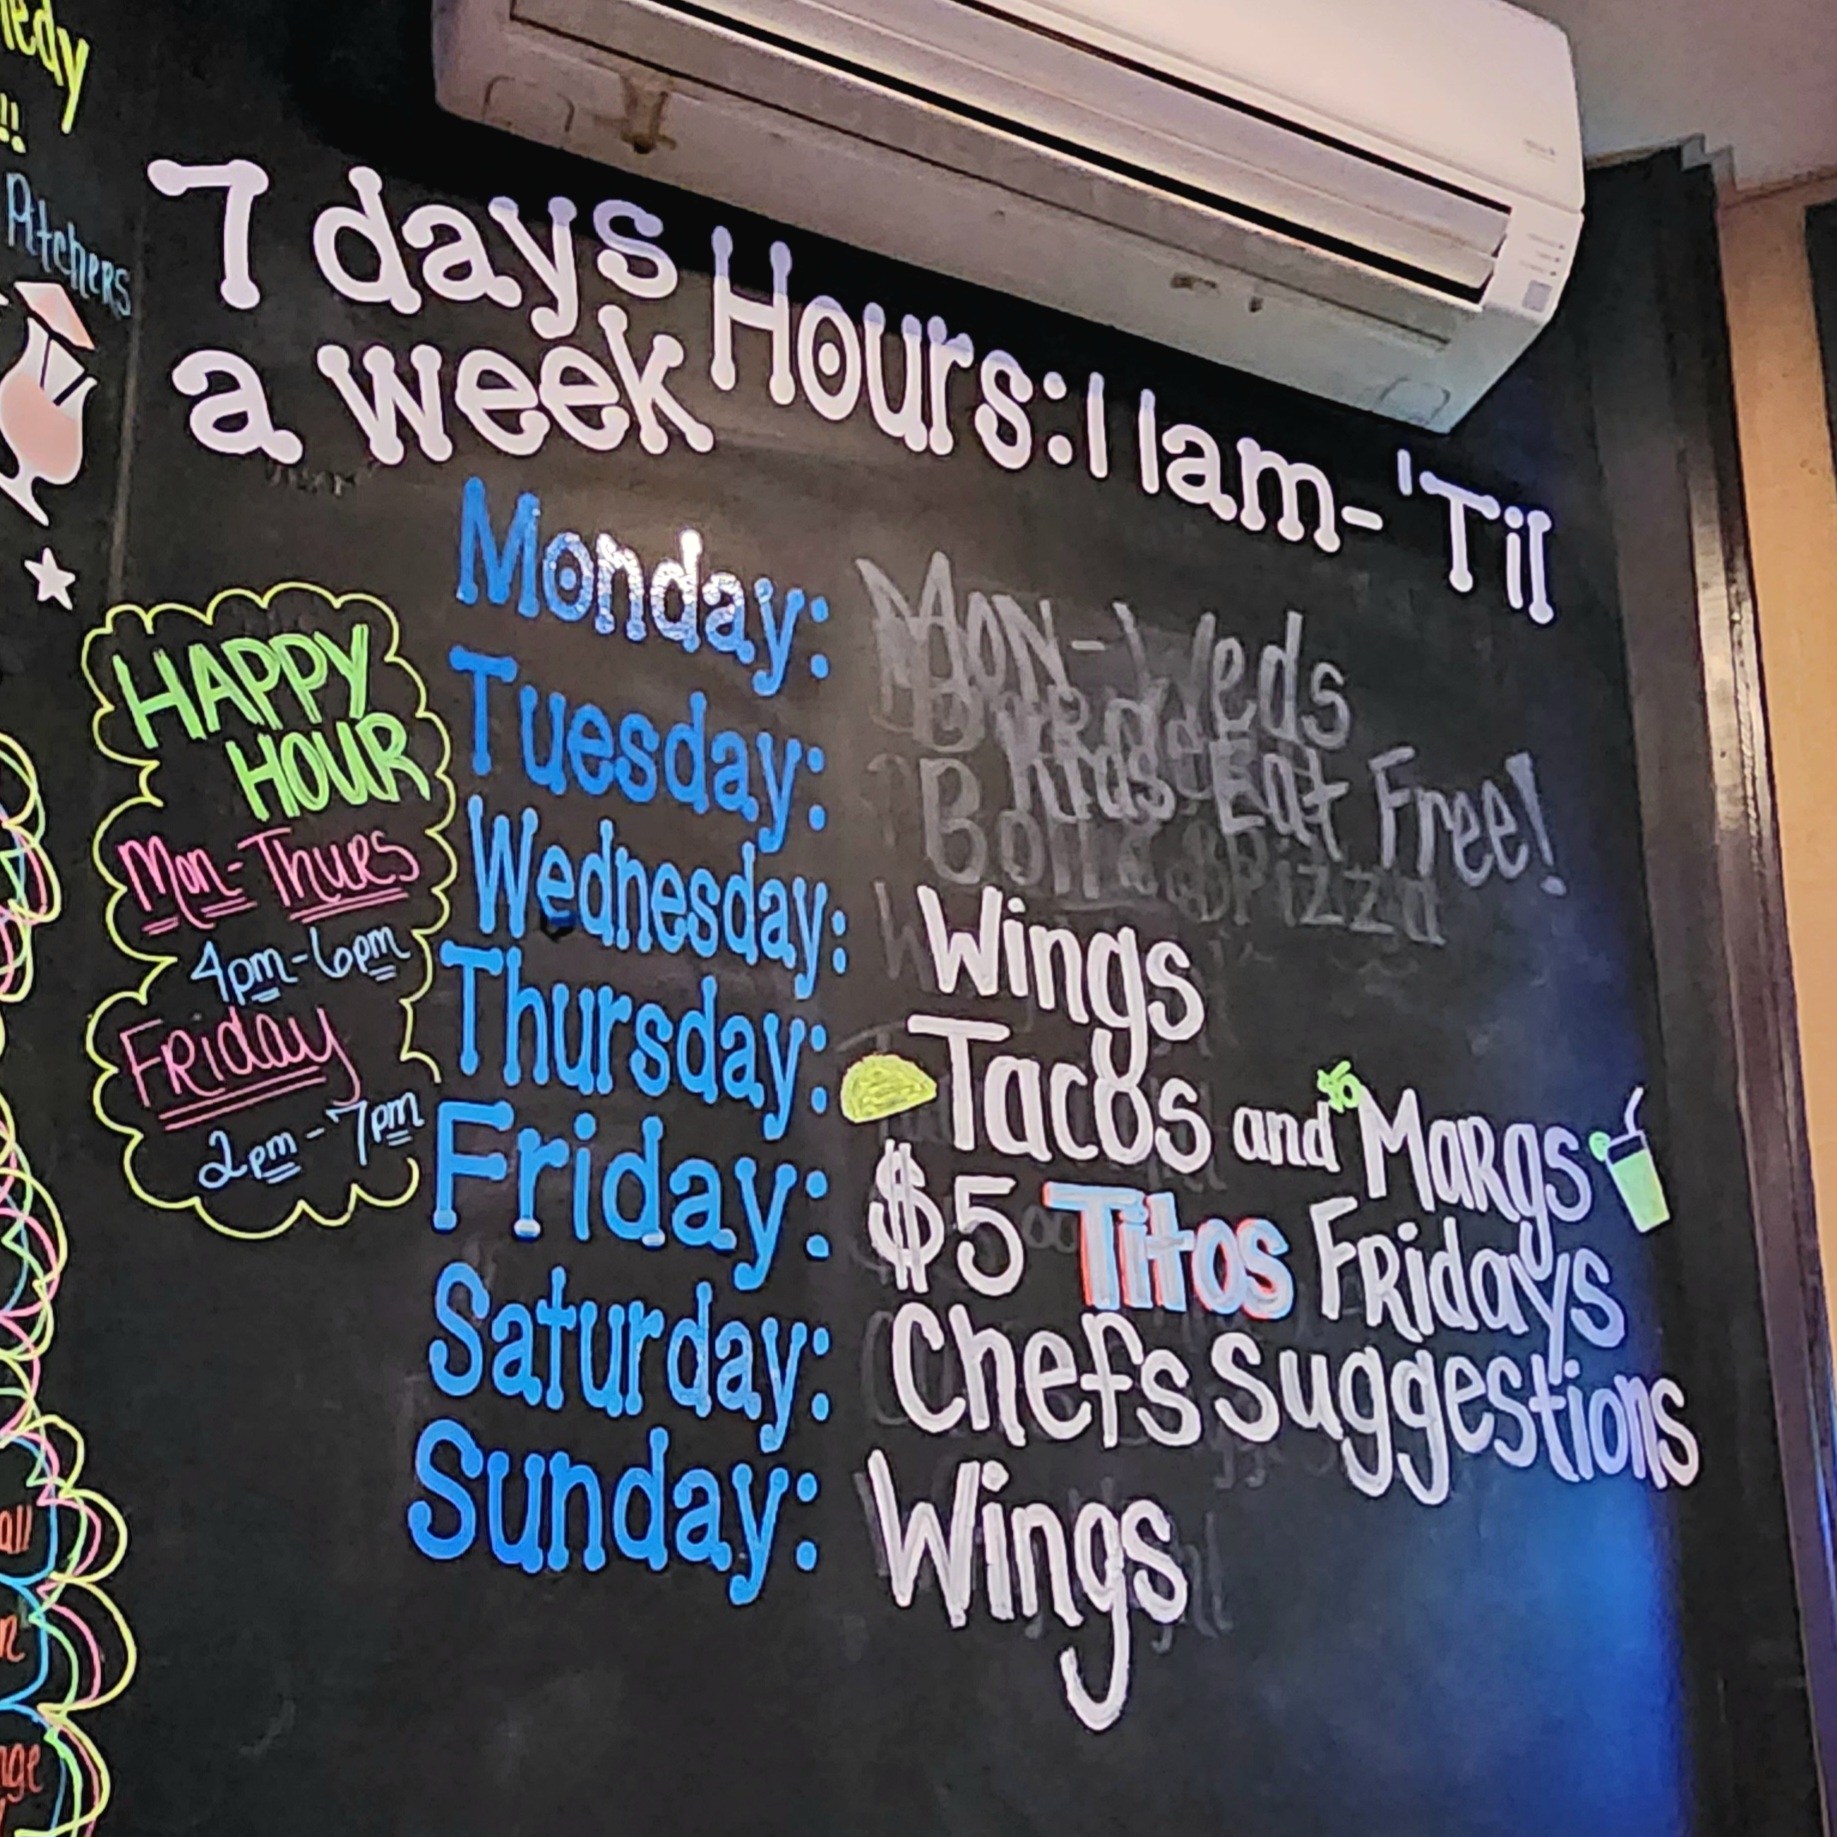 Pitchers
7 days
a week
Hours: 11am- 'Til
HAPPY
HOUR
Mon-Thurs
4pm-6pm
Friday
2pm-7pm
Monday:
Mon-Weds
Tuesday:
Kids Eat Free!
Pizza
Wednesday: Wings
Thursday: Tacos and Margs
Friday: $5 Titos Fridays
Saturday: Chefs Suggestions
Sunday: Wings